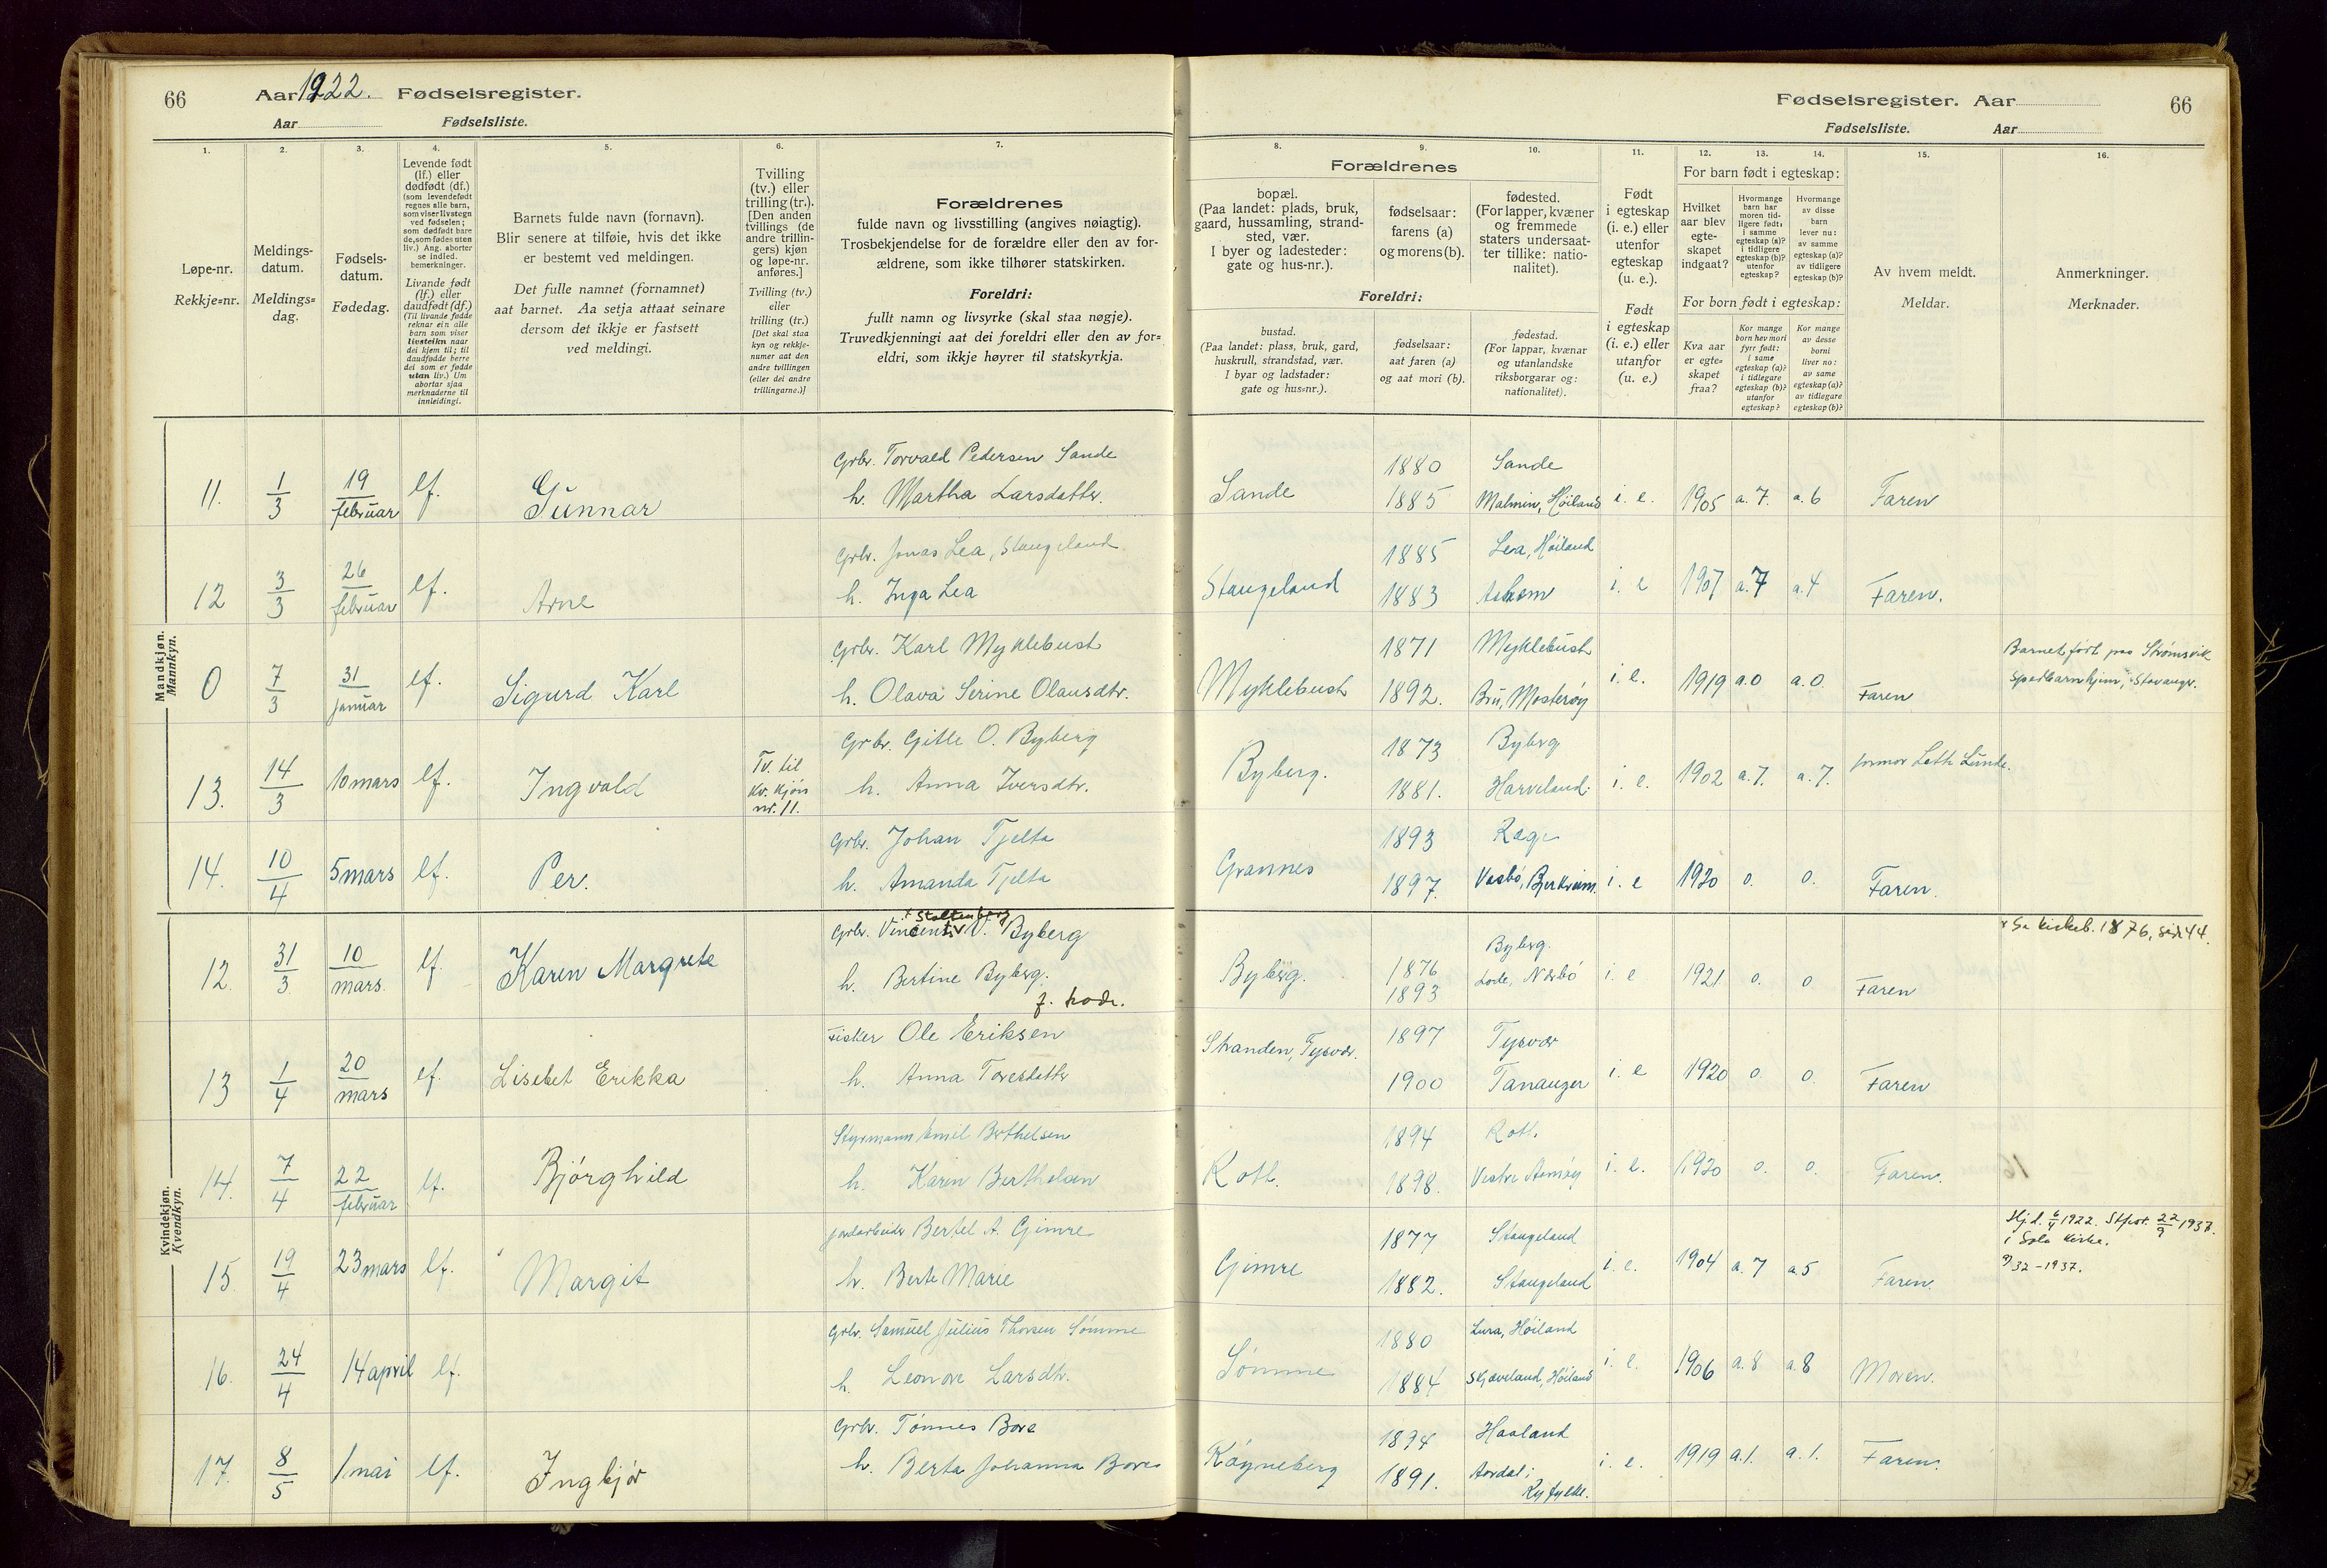 66 Aar 1922. Fødselsregister.
Aar Fødselsliste.
Fødselsregister. Aar 66
Fødselsliste. Aar
1. 2. 3. 4. 5. 6. 7. 8. 9. 10. 11. 12. 13. 14. 15. 16.
Løpe-nr.
Rekkje=nr.
Meldings-
datum.
Meldings=
dag.
Fødsels-
datum.
Fødedag.
Levende født
(lf.) eller
dødfødt (df.)
(som levendefødt
regnes alle barn,
som viser livstegn
ved fødselen;
som dødfødt bare
de, som fødes uten
liv.) Ang. aborter
se indled.
bemerkninger.
Livande født
(lf.) eller
daudfødt (df.)
(Til livande fødde
reknar ein alle
barn som viser
livsteikn naar
dei kjem til; til
daudfødde berre
dei som er fødde
utan liv.) Um
abortar sjaa
merknaderne til
innleidingi.
Barnets fulde navn (fornavn).
Blir senere at tilføie, hvis det ikke
er bestemt ved meldingen.
Det fulle namnet (fornamnet)
aat barnet. Aa setja attaat seinare
dersom det ikkje er fastsett
ved meldingi.
Tvilling
(tv.) eller
trilling (tr.).
[Den anden
tvillings (de
andre trillin-
gers) kjøn
og løpe-nr.
anføres.]
Tvilling (tv.)
eller
trilling (tr.)
[Det skal staa
kyn og rekkje-
numer aat den
andre tvillingen
(eller dei andre
trillingarne.)]
Forældrenes
fulde navn og livsstilling (angives nøiagtig).
Trosbekjendelse for de forældre eller den av for-
ældrene, som ikke tilhører statskirken.
Foreldri:
fullt namn og livsyrke (skal staa nøgje).
Truvedkjenningi aat dei foreldri eller den av for=
eldri, som ikkje høyrer til statskyrkja.
Forældrenes
bopæl.
(Paa landet: plads, bruk,
gaard, hussamling, strand-
sted, vær.
I byer og ladesteder:
gate og hus-nr.).
fødselsaar:
farens (a)
og morens (b).
fødested.
(For lapper, kvæner
og fremmede
staters undersaat-
ter tillike: natio-
nalitet).
Foreldri:
bustad.
(Paa landet: plass, bruk, gard,
huskrull, strandstad, vær.
I byar og ladstader:
gate og hus=nr.).
fødselsaar:
aat faren (a)
og aat mori (b).
fødestad.
(For lappar, kvænar
og utanlandske
riksborgarar og:
nationalitet).
Født
i egteskap
(i. e.) eller
utenfor
egteskap
(u. e.).
Født
i egteskap
(i. e.) eller
utanfor
(u. e.)
For barn født i egteskap:
Hvilket
aar blev
egte-
skapet
indgaat?
Hvormange
barn har
moren tid-
ligere født:
i samme
egteskap (a)?
i tidligere
egteskap (b)?
utenfor
egteskap?
Hvormange
av disse
barn
lever nu:
av samme
egteskap (a)?
av tidligere
egteskap (b)?
For born født i egteskap:
Kva aar
er egte=
skapet
fraa?
Kor mange
born hev mori
fyrr født:
i same
egteskap (a)?
i tidlegare
egteskap (b)?
utanfor
egteskap?
Kor mange
av desse
borni
liver no:
av same
egteskap (a)?
av tidlegare
egteskap (b)?
Av hvem meldt.
Meldar.
Anmerkninger.
Merknader.
Mandkjøn.
Mannkyn.
11. 1/3 19 februar lf. Gunnar
Grbr. Torvald Pedersen Sande
h. Martha Larsdatter.
Sande 1880 Sande
1885 Malmin, Høiland i. e. 1905 a. 7. a. 6 Faren
12 3/3 26 februar lf. Arne
Grbr. Jonas Lea, Stangeland
h. Inga Lea
Stangeland 1885 Lea, Høiland
1883 i. e 1907 a. 7 a. 4 Faren.
0 7/3 31 januar lf. Sigurd Karl
Grbr. Karl Myklebust
h. Olava Serine Olausdtr.
Myklebust 1871 Myklebust
1892. Bru, Mosterøy i. e. 1919 a. 0 a. 0. Faren
Barnet født paa Strømsvik
spedbarnhjem, Stavanger.
13. 14/3 10 mars lf. Ingvald
Tv. til
kv. kjøn
nr. 11.
Grbr. Gitle O. Byberg
h. Anna Iversdtr.
Byberg. 1873 Byberg
1881. Harveland. i. e. 1902 a. 7. a. 7. jormor Lunde.
14. 10/4 5 mars lf. Per.
Grbr. Johan Tjelta
h. Amanda Tjelta
Grannes 1893 Ræge
1897. Vasbø, Bjerkreim. i. e 1920 0. 0. Faren.
Kvindekjøn.
Kvendkyn.
12. 31/3 10 mars. lf. Karen Margrete
x Stoltenberg
Grbr. Vincents V. Byberg
h. Bertine Byberg.
f. Lode.
Byberg. 1876 Byberg.
1893 Lode, Nærbø i. e 1921. 0. 0 Faren
x Se kirkeb. 1876, side 44.
13 1/4 20 mars lf. Lisebet Erikka
Fisker Ole Eriksen
h. Anna Toresdatter
Stranden, Tysvær. 1897 Tysvær
1900 Tananger i. e 1920 0. 0. Faren
14. 7/4 22 februar lf. Bjørghild
Styrmann Emil Berthelsen
h. Karin Berthelsen
Rott. 1894 Rott.
1898. Vestre Aamøy i. e. 1920 0. 0. Faren.
15. 19/4 23 mars lf. Margit
jordarbeider Bertel A. Gimre
h. Berte Marie
Gimre 1877 Stangeland
1882. Stangeland i. e. 1904 a. 7 a. 5 Faren.
Hj.d. 6/4 1922. Stfest. 22/9 1937.
i Sola kirke.
32 - 1937.
16. 24/4 14 april lf.
Grbr. Samuel Julius Thorsen Sømme
h. Leonore Larsdtr.
Sømme 1880 Lura, Høiland
1884 Skjæveland, Høiland i. e. 1906 a. 8 a. 8 Moren.
17. 8/5 1 mai lf. Ingbjør
Grbr. Tønnes Bore
h. Berta Johanna Bore
Røyneberg 1894 Haaland
1891. Aardal i
Ryfylke. i. e. 1919 a. 1. a. 1. Faren.